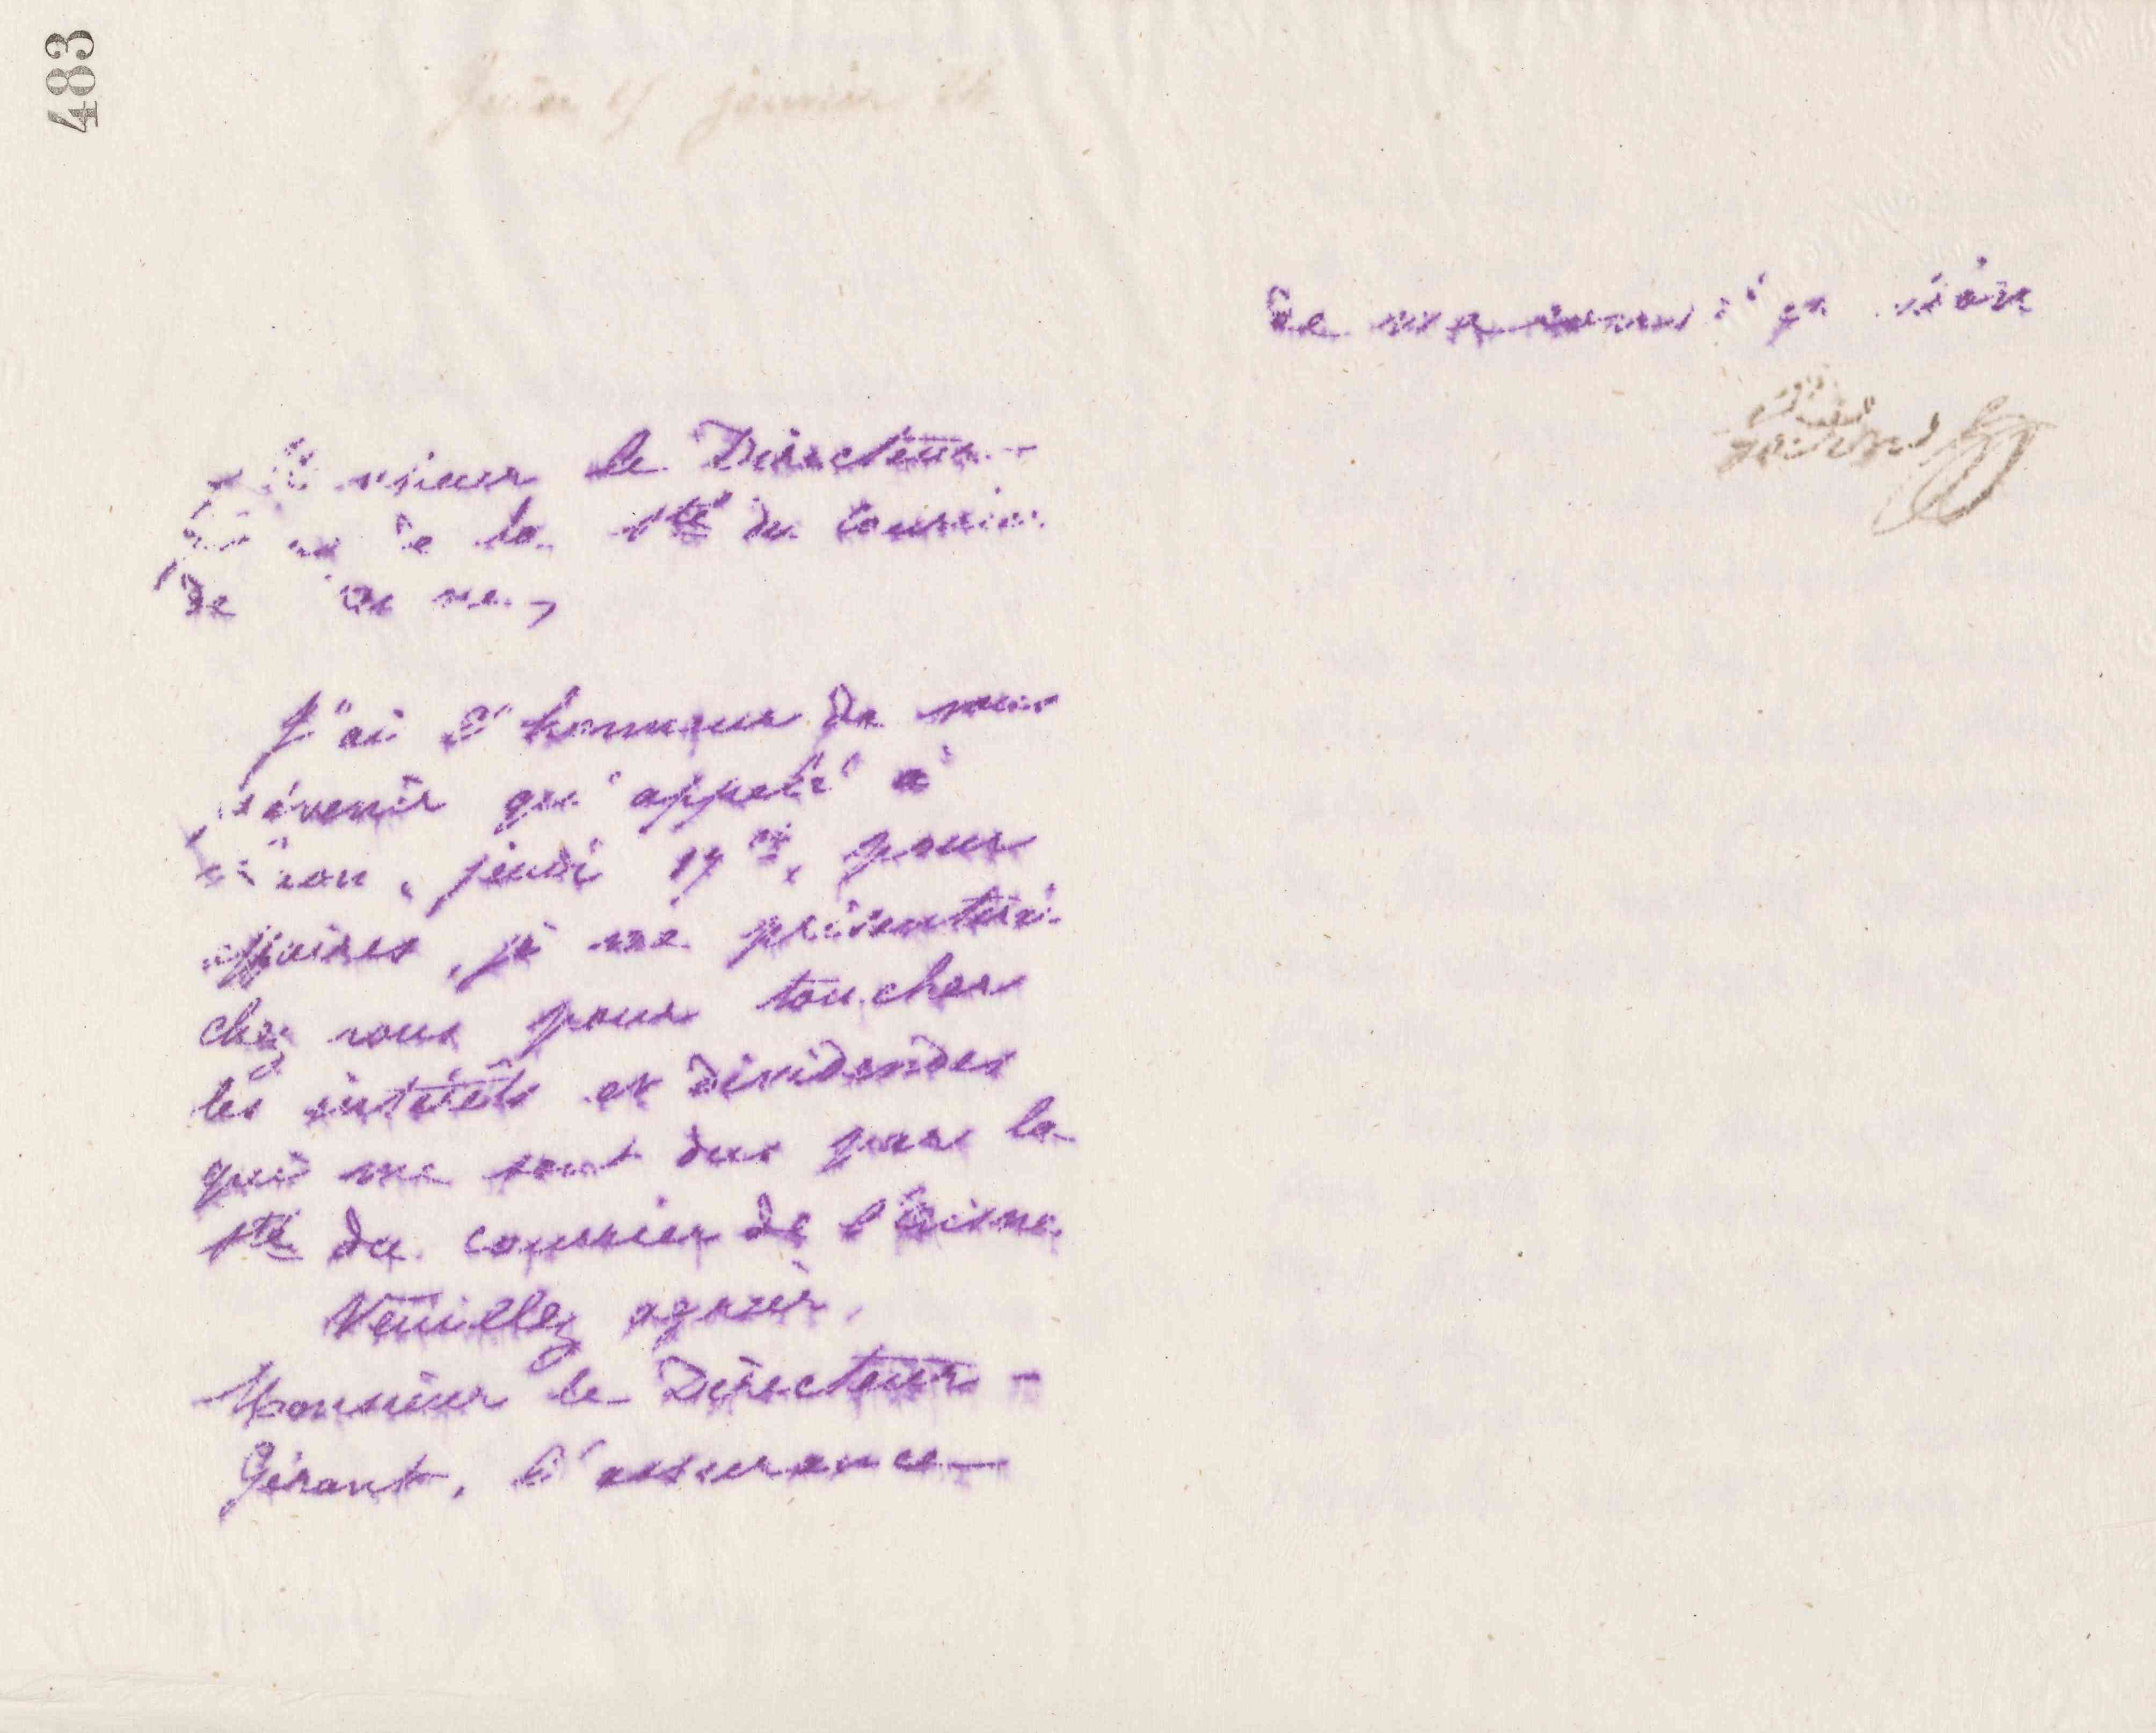 483
Guise 15 janvier 84
Monsieur le Directeur-
Gérant de la Sté du Courrier
de l'Aisne,
J'ai l'honneur de vous
prévenir qu'appelé à
Laon, jeudi 17 ct, pour
affaires, je me présenterai
chez vous pour toucher
les intérêts et dividendes
qui me sont dus par la
Sté du courrier de l'Aisne.
Veuillez agréer,
Monsieur le Directeur-
Gérant, l'assurance
de ma considération
Godin